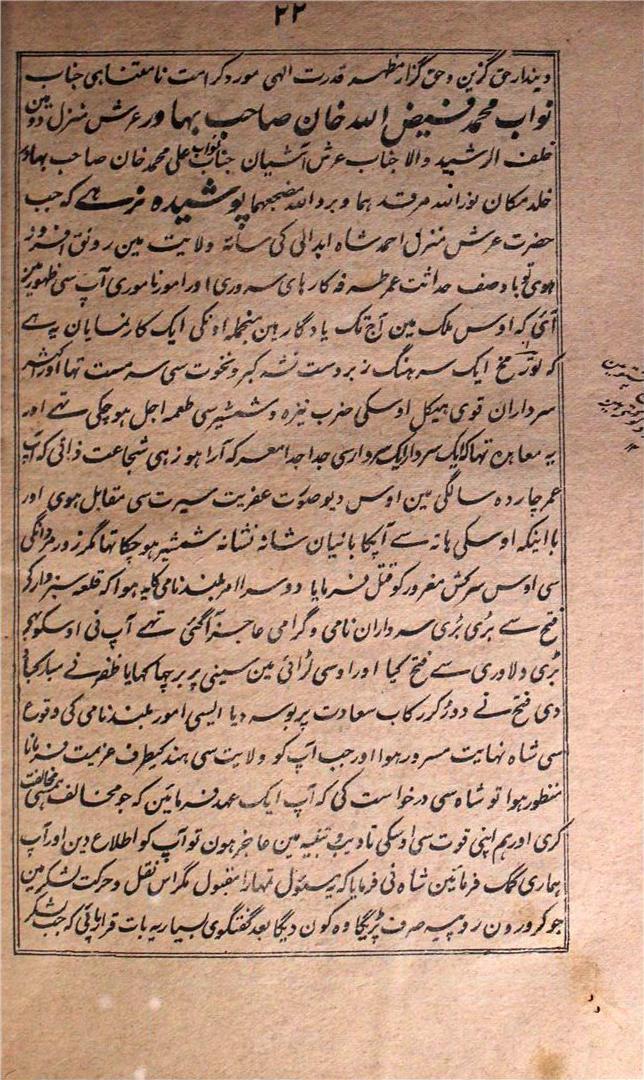 ۲۲
دیندار حق گزین و حق گزار مظہر قدرت الہی مورد کرامت نامتناہی جناب
نواب محمد فیض اللہ خان صاحب بہادر عرش منزل دو بین
خلف الرشید والا جناب عرش آشیان جناب نواب علی محمد خان صاحب بہادر
خلد مکان نور اللہ مرقد ہما و برد اللہ مضجعہما پوشیدہ نرہے کہ جب
حضرت عرش منزل احمد شاہ ابدالی کی ساتہ ولایت مین رونق افروز
ہوی تو باوصف حداثت عمر طرفہ کارہای سروری اور امور ناموری آپ سی ظہور مین
آئی کہ اوس ملک مین آج تک یادگار ہین منجملہ اونکی ایک کار نمایان یہ ہے
کہ ایک سرہنگ زبردست نشہ کبر و نخوت سی سرمست تہا اور اکثر
سرداران قوی ہیکل اوسکی ضرب نیزہ و شمشیر سی طعمہ اجل ہوچکی تہے اور
یہ معاہرہ تہا کہ ایک سردار ایک سردار سی جدا جدا معرکہ آرا ہو زہی شجاعت ذاتی کہ آپ
عمر چاردہ سالگی مین اوس دیو صورت عفریت سیرت سی مقابل ہوی اور
با اینکہ اوسکی ہاتہ سے آپکا بائیان شانہ نشانہ شمشیر ہوچکا تہا مگر زور مردانگی
سی اوس سرکش مغرور کو قتل فرمایا دوسرا امر بلند نامی کا یہ ہوا کہ قلعہ سبزوار کی
فتح سے بڑی بڑی سرداران نامی و گرامی عاجز آگئی تہے آپ نی اوسکو بہی
بڑی دلاوری سے فتح کیا اور اوسی لڑائی مین سینی پر برچہا کہایا ظفر نے مبارکباد
دی فتح نے دوڑ کر رکاب سعادت پر بوسہ دیا ایسی امور بلند نامی کی وقوع
سی شاہ نہایت مسرور ہوا اور جب آپ کو ولایت سی ہند کیطرف عزیمت فرمانا
منظور ہوا تو شاہ سی درخواست کی کہ آپ ایک عہد فرمائین کہ جو مخالف ہمسی مخالفت
کری اور ہم اپنی قوت سی اوسکی تادیب و تنبیہ مین عاجز ہون تو آپ کو اطلاع دین اور آپ
ہماری کمک فرمائین شاہ نی فرمایا کہ یہ مسئول تمہارا مقبول مگر اس نقل و حرکت لشکر مین
جو کرورون روپیہ صرف پڑیگا وہ کون دیگا بعد گفتگوی بسیار یہ بات قرار پائی کہ جب لشکر